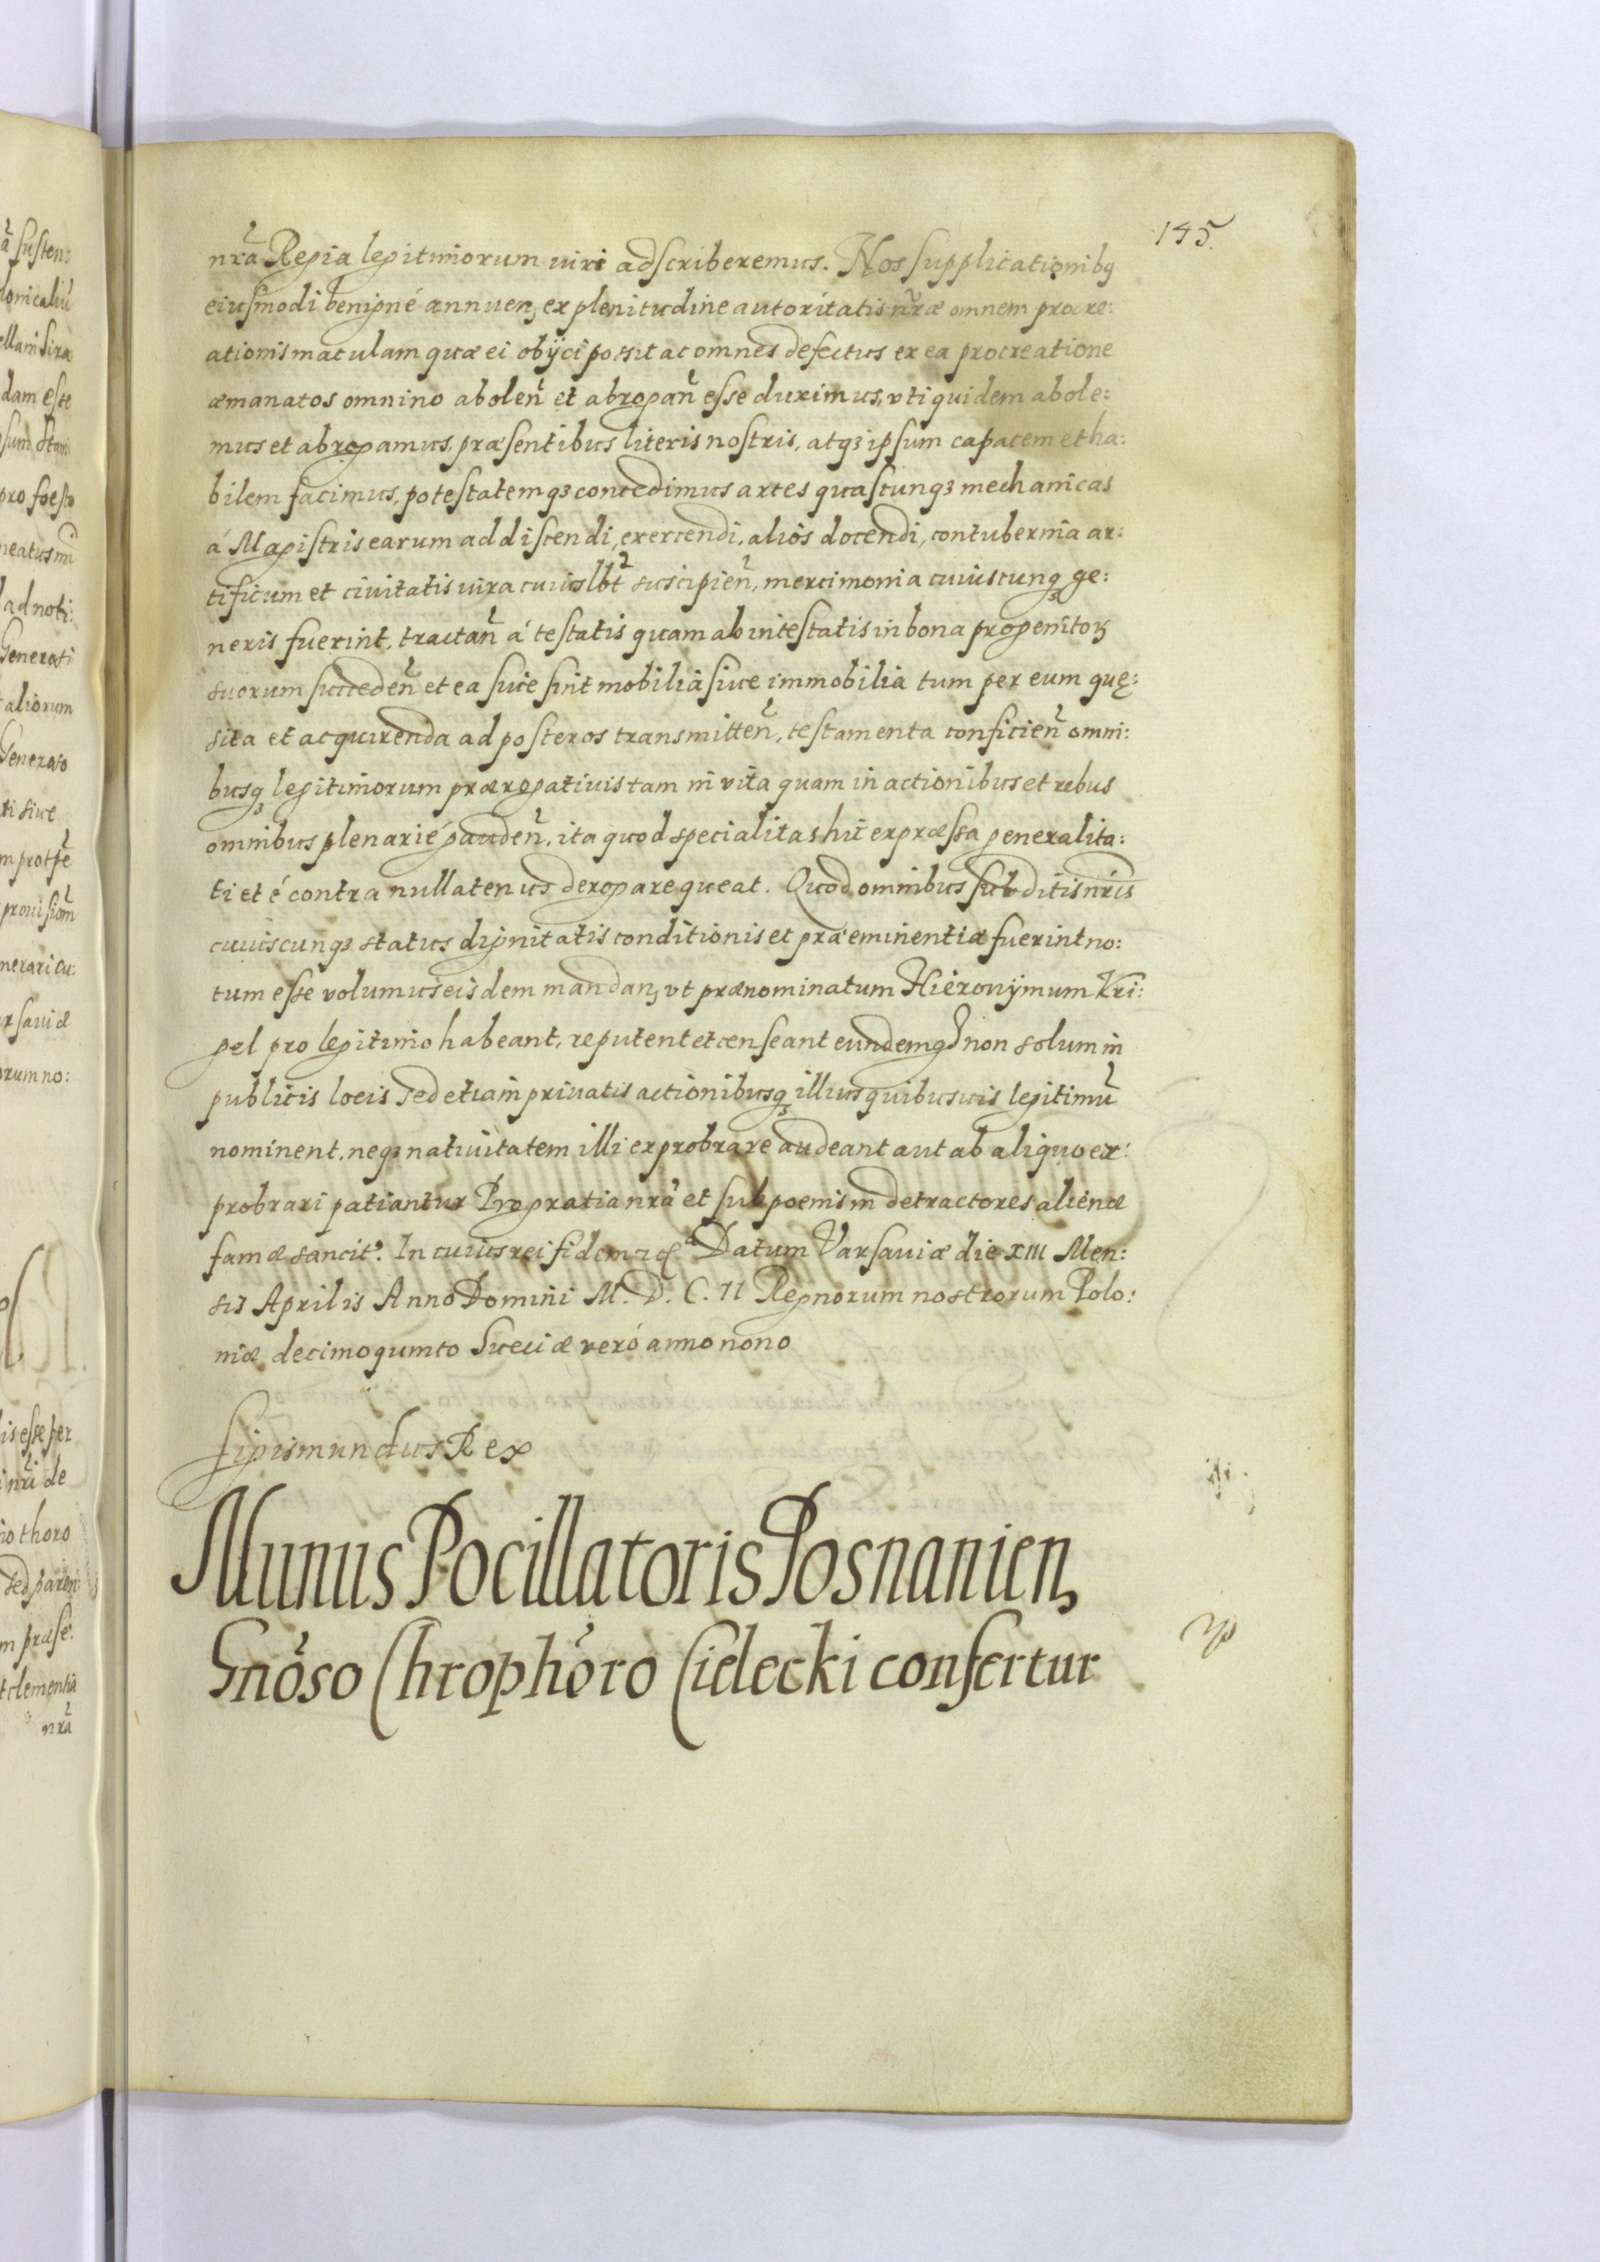 145.
nrã Regia legitimorum iuri adscriberemus. Nos supplicationibq
eiusmodi benigné annuen, ex plenitudine autoritatis nr̃æ omnem procre:
ationis maculam quæ ei obijci possit ac omnes defectus ex ea procreatione
æmanatos omnino abolen̄ et abrogan̄ esse duximus, vti quidem abole:
mus et abrogamus, præsentibus literis nostris, atqꝫ ipsum capacem et ha:
bilem facimus, potestatemqꝫ concedimus artes quascunqꝫ mechanicas
á Magistris earum addiscendi, exercendi, alios docendi, contubernia ar:
tificum et ciuitatis iura cuiuslbt̃ suscipien̄, mercimonia cuiuscunqꝫ ge:
neris fuerint, tractan̄ á testatis quam ab intestatis in bona progenitoꝝ
suorum succeden̄ et ea siue sint mobilia siue immobilia tum per eum quę:
sita et acquirenda ad posteros transmitten̄, testamenta conficien̄ omni:
busqꝫ legitimorum prærogatiuis tam in vita quam in actionibus et rebus
omnibus plenarié gauden̄, ita quod specialitas hic expræssa generalita:
ti et é contra nullatenus derogare queat. Quod omnibus subditis nris̃
cuiuscunqꝫ status dignitatis conditionis et præeminentiæ fuerint no:
tum esse volumus eisdem mandan, vt prænominatum Hieronymum Kri:
gel pro legitimo habeant, reputent et censeant eundemqꝫ non solum in
publicis locis sed etiam priuatis actionibusqꝫ illius quibusuis legitimū
nominent, neqꝫ natiuitatem illi exprobrare audeant aut ab aliquo ex:
probrari patiantur Pro gratia nrã et sub poenis in detractores alienæ
famæ sancit⁹. In cuius rei fidem Datum Varsauiæ die XIII Men:
sis Aprilis Anno Domini M. D. C. II Regnorum nostrorum Polo:
niæ decimoquinto Sueciæ veró anno nono
Sigismundus Rex
Munus Pocillatoris Posnanien,
Gnõso Chrophõro Cielecki confertur